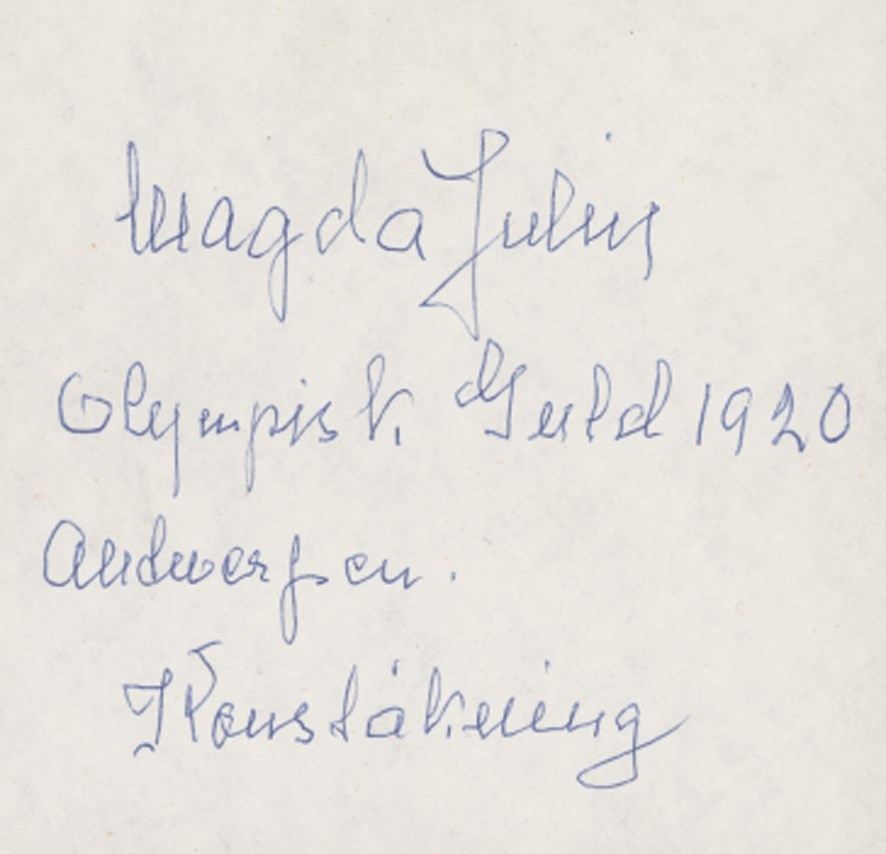 Magda Julin
Olympisk Guld 1920
Antwerpen.
Konståkning